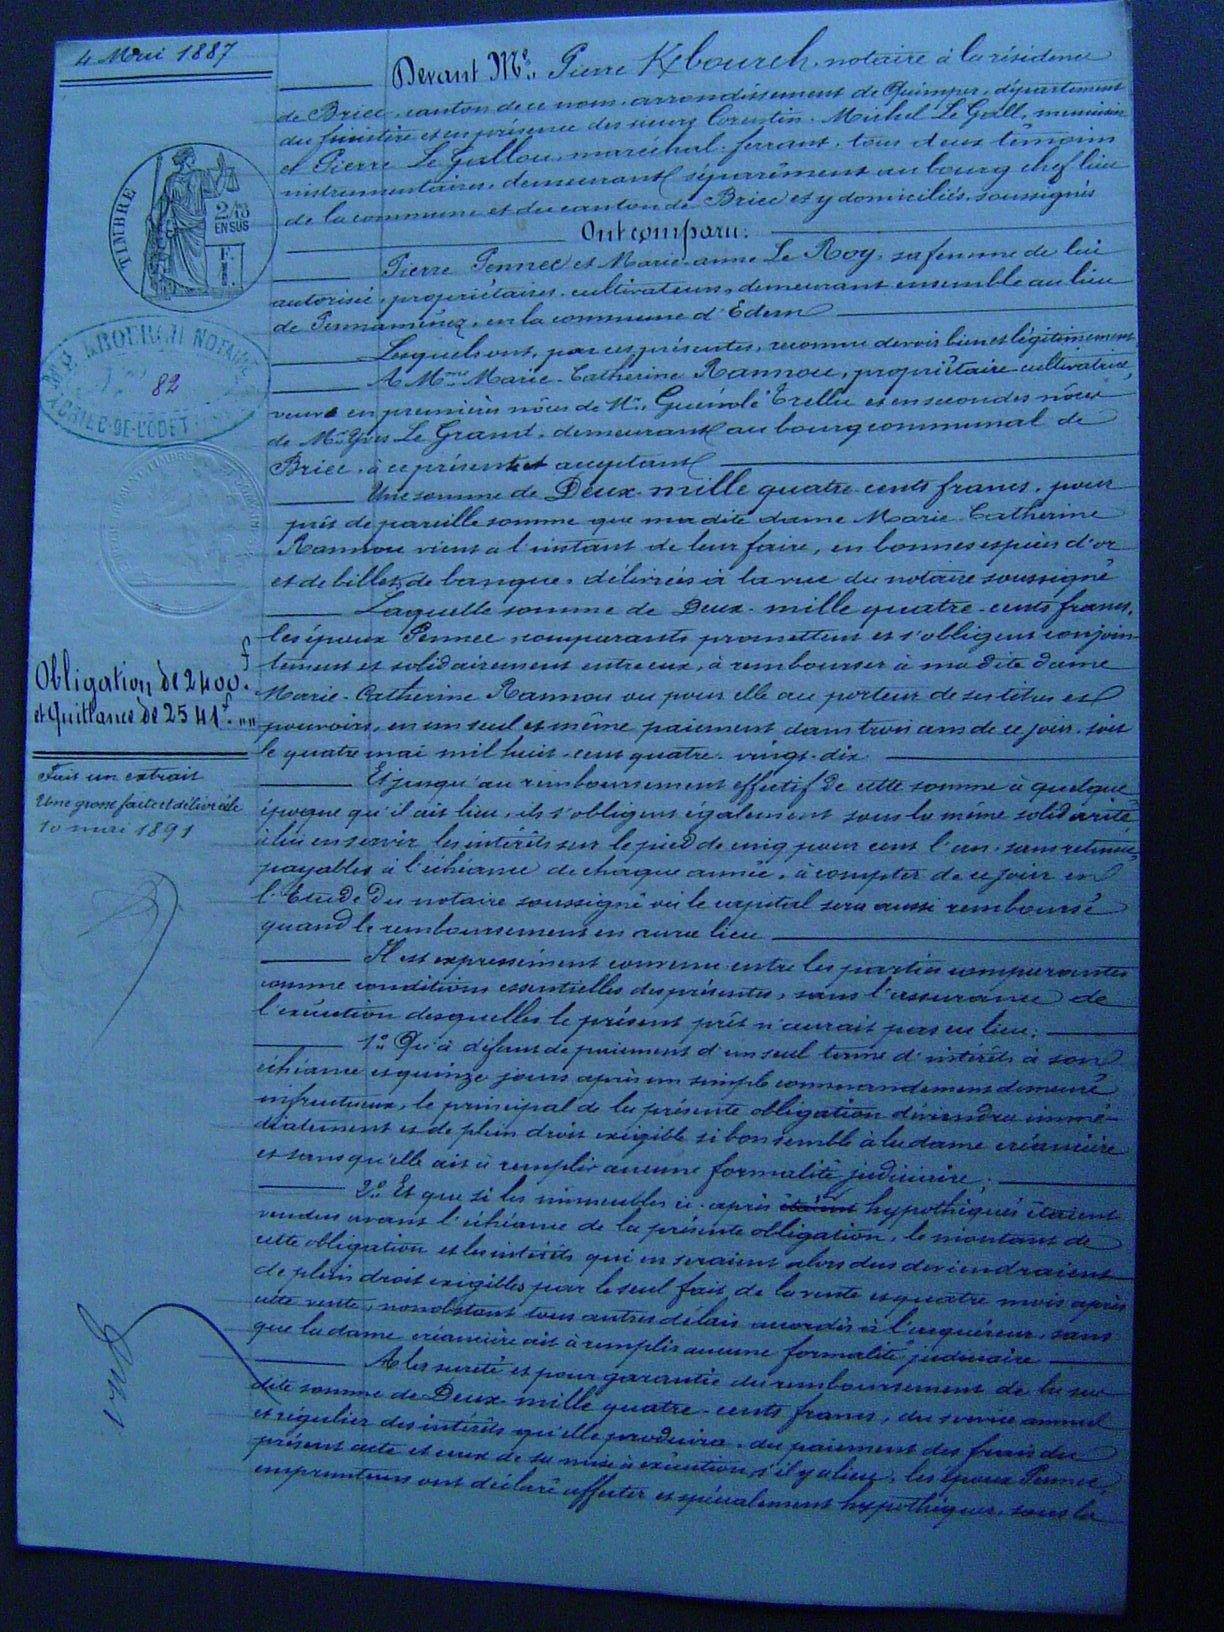 4 Mai 1887
Devant Me. Pierre Kbourch, notaire à la résidence
de Briec, canton de ce nom, arrondissement de Quimper, département
du finistère et en présence des sieurs Corentin-Michel Le Gall, menuisier
et Pierre Le Gallou, maréchal-ferrant, tous deux témoins
instrumentaires, demeurant séparément au bourg chef lieu
de la commune et du canton de Briec et y domiciliés, soussignés
Ont comparu:
Pierre Pennec et Marie-anne Le Roy, sa femme de lui
autorisée, propriétaires-cultivateurs, demeurant ensemble au lieu
de Pennaménez, en la commune d'Edern
Lesquels ont, par ces présentes, reconnu devoir bien et légitimement
A Mme Marie-Catherine Rannou, propriétaire-cultivatrice,
veuve en premières nôces de Mr. Guénolé Trellu et en secondes nôces
de Mr Yves Le Grand, demeurant au bourg communal de
Briec, à ce présente et acceptant
Une somme de Deux-mille quatre-cents francs, pour
prêt de pareille somme que madite dame Marie-Catherine
Rannou vient à l'instant de leur faire, en bonnes espèces d'or
et de billets de banque, délivrées à la vue du notaire soussigné
Laquelle somme de Deux-mille quatre-cents francs,
les époux Pennec, comparants promettent et s'obligent conjoin-
tement et solidairement entre eux, à rembourser à madite dame
Marie-Catherine Rannou ou pour elle au porteur de ses titres et
pouvoirs, en un seul et même paiement dans trois ans de ce jour, soit
le quatre mai mil huit-cent quatre-vingt-dix
Et jusqu'au remboursement effectif de cette somme à quelque
époque qu'il ait lieu, ils s'obligent également sous la même solidarité
à lui en servir les intérêts sur le pied de cinq pour cent l'an, sans retenue,
payables à l'échéance de chaque année, à compter de ce jour en
l'Etude du notaire soussigné où le capital sera aussi remboursé
quand le remboursement en aura lieu
Il est expressément convenu entre les parties comparantes
comme conditions essentielles des présentes, sans l'assurance de
l'exécution desquelles le présent prêt n'aurait pas eu lieu:
1o Qu'à défaut de paiement d'un seul terme d'intérêts à son
échéance et quinze jours après un simple commandement demeuré
infructueux, le principal de la présente obligation deviendra immé-
diatement et de plein droit exigible si bon semble à la dame créancière
et sans qu'elle ait à remplir aucune formalité judiciaire.
2o Et que si les immeubles ci-après étaient hypothéqués étaient
vendus avant l'échéance de la présente obligation, le montant de
cette obligation et les intérêts qui en seraient alors dus deviendraient
de plein droit exigibles par le seul fait de la vente et quatre mois après
cette vente, nonobstant tous autres délais accordés à l'acquéreur, sans
que la dame créancière ait à remplir aucune formalité judiciaire
A la sureté et pour garantie du remboursement de la sus-
dite somme de Deux-mille quatre-cents francs, du service annuel
et régulier des intérêts qu'elle produira, du paiement des frais du
présent acte et ceux de sa mise à exécution s'il y a lieu, les époux Pennec,
emprunteurs ont déclaré affecter et spécialement hypothéquer, sous la
TIMBRE
2/10
EN SUS
F.
1.
NOTAIRE
82
A BRIEC-DE-L'ODET
Obligation de 2400.f
et Quittance de 2541f. ""
Fait un extrait
Une grosse faite et délivrée le
10 mai 1891